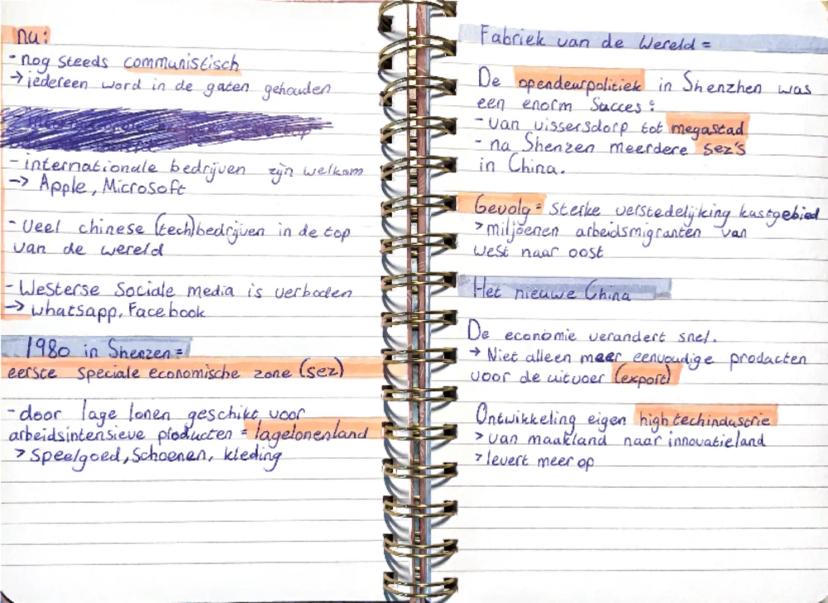 nu:
- nog steeds communistisch
→ iedereen word in de gaten gehouden
- internationale bedrijven zijn welkom
-> Apple, Microsoft
- veel chinese (tech)bedrijven in de top
van de wereld
- Westerse sociale media is verboden
-> whatsapp, Facebook
1980 in Shenzen =
eerste speciale economische zone (sez)
- door lage lonen geschikt voor
arbeidsintensieve producten = lagelonenland
> speelgoed, schoenen, kleding
Fabriek van de Wereld =
De opendeurpolitiek in Shenzhen was
een enorm succes:
- van vissersdorp tot megastad
- na Shenzen meerdere sez's
in China.
Gevolg = sterke verstedelijking kustgebied
> miljoenen arbeidsmigranten van
west naar oost
Het nieuwe China
De economie verandert snel.
→ Niet alleen meer eenvoudige producten
voor de uitvoer (export)
Ontwikkeling eigen high techindustrie
> van maakland naar innovatieland
> levert meer op